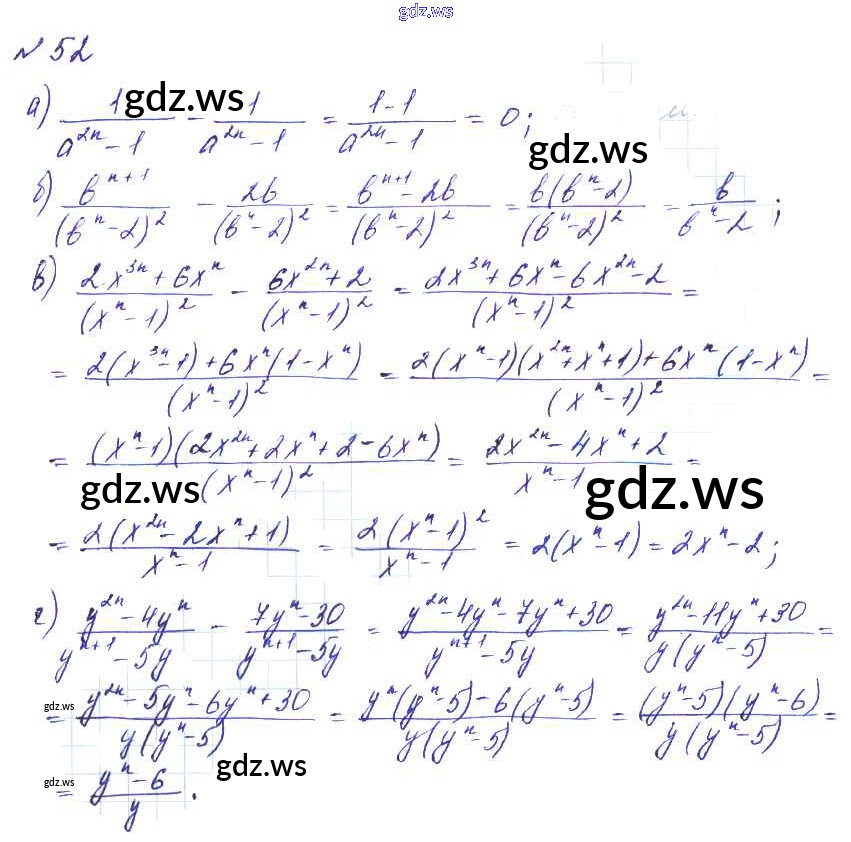 gdz.ws
№ 52
а) 1/(a^(2n) - 1) - 1/(a^(2n) - 1) = (1 - 1)/(a^(2n) - 1) = 0; gdz.ws gdz.ws
б) b^(n+1)/(b^n - 2)^2 - 2b/(b^n - 2)^2 = (b^(n+1) - 2b)/(b^n - 2)^2 = b(b^n - 2)/(b^n - 2)^2 = b/(b^n - 2);
в) (2x^(3n) + 6x^n)/(x^n - 1)^2 - (6x^(2n) + 2)/(x^n - 1)^2 = (2x^(3n) + 6x^n - 6x^(2n) - 2)/(x^n - 1)^2 =
= (2(x^(3n) - 1) + 6x^n(1 - x^n))/(x^n - 1)^2 = (2(x^n - 1)(x^(2n) + x^n + 1) + 6x^n(1 - x^n))/(x^n - 1)^2 =
= (x^n - 1)(2x^(2n) + 2x^n + 2 - 6x^n)/(x^n - 1)^2 = (2x^(2n) - 4x^n + 2)/(x^n - 1) =
gdz.ws gdz.ws
= 2(x^(2n) - 2x^n + 1)/(x^n - 1) = 2(x^n - 1)^2/(x^n - 1) = 2(x^n - 1) = 2x^n - 2;
г) (y^(2n) - 4y^n)/(y^(n+1) - 5y) - (7y^n - 30)/(y^(n+1) - 5y) = (y^(2n) - 4y^n - 7y^n + 30)/(y^(n+1) - 5y) = (y^(2n) - 11y^n + 30)/(y(y^n - 5)) =
gdz.ws
= (y^(2n) - 5y^n - 6y^n + 30)/(y(y^n - 5)) = (y^n(y^n - 5) - 6(y^n - 5))/(y(y^n - 5)) = (y^n - 5)(y^n - 6)/(y(y^n - 5)) =
gdz.ws gdz.ws
= (y^n - 6)/y.